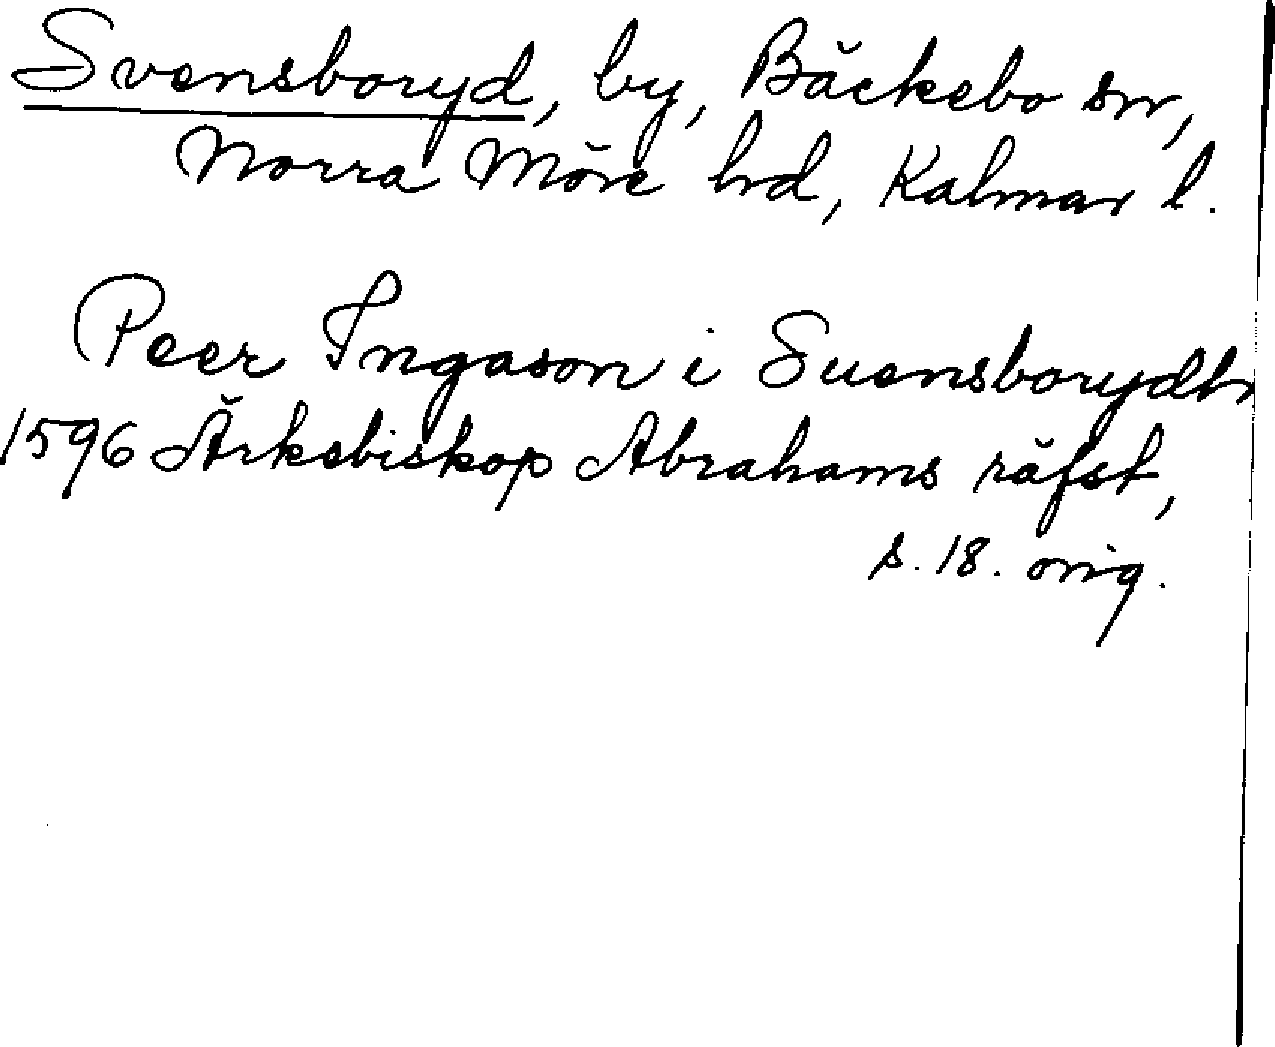 Svensboryd, by, Bäckebo sn,
Norra Möre hd, Kalmar l.
Peer Ingason i Suensborydh
1596 Ärkebiskop Abrahams räfst,
s. 18. orig.